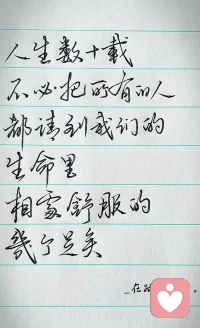 人生数十载
不必把所有的人
都请到我们的
生命里
相处舒服的
几个足矣